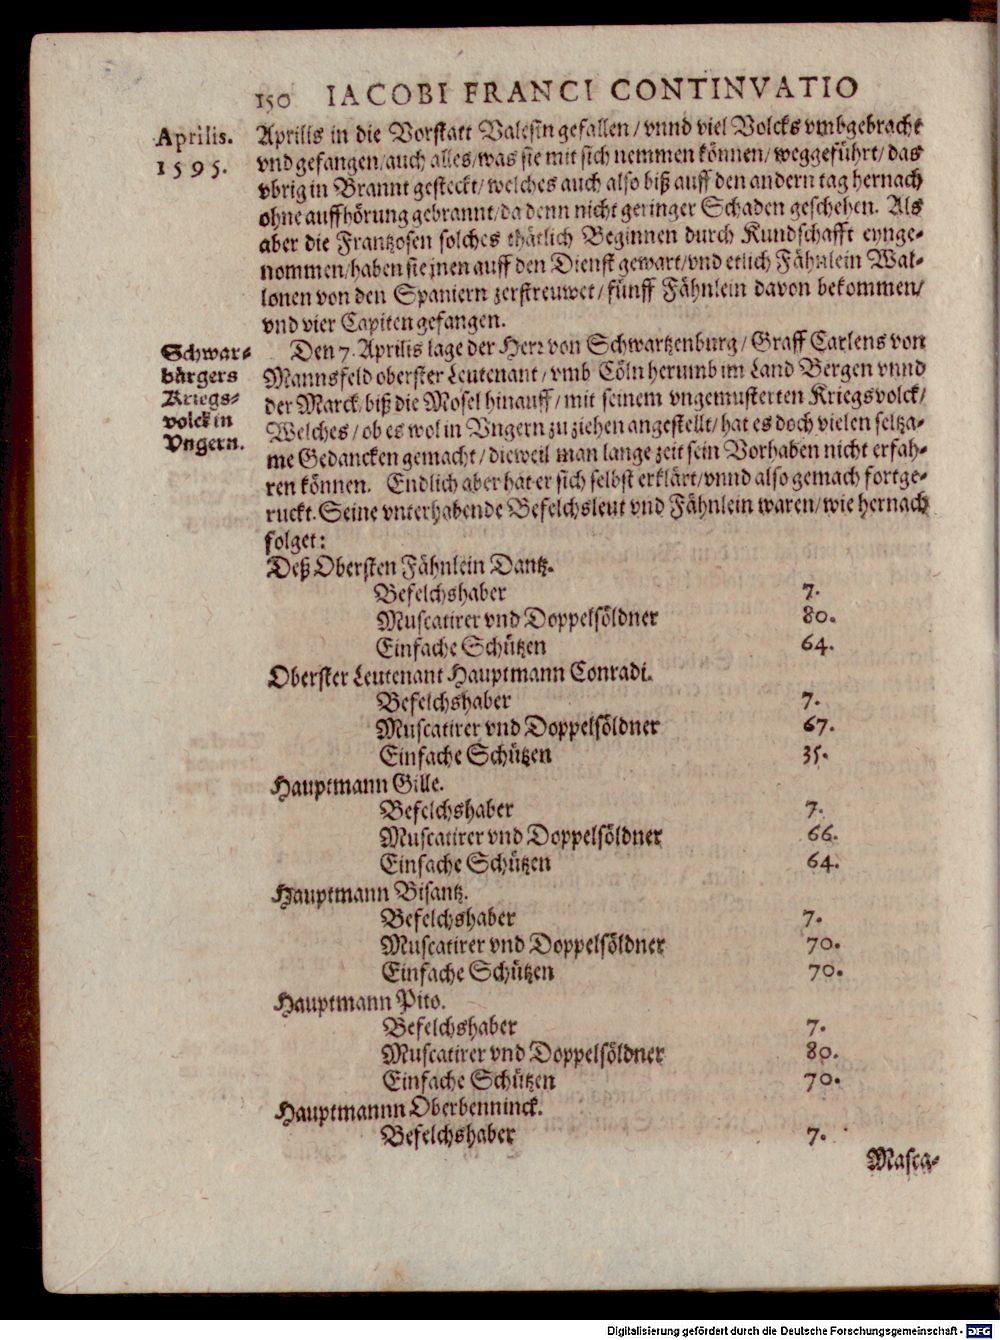 150 IACOBI FRANCI CONTINVATIO
Aprilis.
1595.
Aprilis in die Vorstatt Valesin gefallen/ vnnd viel Volcks vmbgebracht
vnd gefangen/ auch alles/ was sie mit sich nemmen können/ weggeführt/ das
vbrig in Brannt gesteckt/ welches auch also biß auff den andern tag hernach
ohne auffhörung gebrannt/ da denn nicht geringer Schaden geschehen. Als
aber die Frantzosen solches thätlich Beginnen durch Kundschafft eynge-
nommen/ haben sie jnen auff den Dienst gewart/ vnd etlich Fähnlein Wal-
lonen von den Spaniern zerstreuwet/ fünff Fähnlein davon bekommen/
vnd vier Capiten gefangen.
Schwar-
bärgers
Kriegs-
volck in
Vngern.
Den 7. Aprilis lage der Herr von Schwartzenburg/ Graff Carlens von
Mannsfeld oberster Leutenant/ vmb Cöln herumb im Land Bergen vnnd
der Marck/ biß die Mosel hinauff/ mit seinem vngemusterten Kriegsvolck/
Welches/ ob es wol in Vngern zu ziehen angestellt/ hat es doch vielen seltza-
me Gedancken gemacht/ dieweil man lange zeit sein Vorhaben nicht erfah-
ren können. Endlich aber hat er sich selbst erklärt/ vnnd also gemach fortge-
ruckt. Seine vnterhabende Befelchsleut vnd Fähnlein waren/ wie hernach
folget:
Deß Obersten Fähnlein Dantz.
Befelchshaber 7.
Muscatirer vnd Doppelsöldner 80.
Einfache Schützen 64.
Oberster Leutenant Hauptmann Conradi.
Befelchshaber 7.
Muscatirer vnd Doppelsöldner 67.
Einfache Schützen 35.
Hauptmann Gille.
Befelchshaber 7.
Muscatirer vnd Doppelsöldner 66.
Einfache Schützen 64.
Hauptmann Bisantz.
Befelchshaber 7.
Muscatirer vnd Doppelsöldner 70.
Einfache Schützen 70.
Hauptmann Pito.
Befelchshaber 7.
Muscatirer vnd Doppelsöldner 80.
Einfache Schützen 70.
Hauptmannn Oberbenninck.
Befelchshaber 7.
Masca-
Digitalisierung gefördert durch die Deutsche Forschungsgemeinschaft - DFG